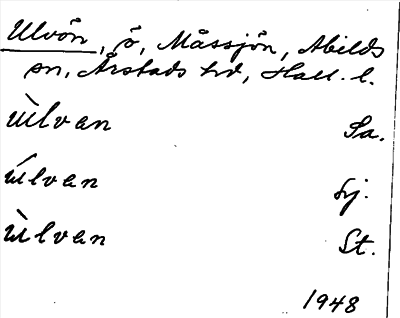 Ulvön, ö, Måssjön, Abilds
sn, Årstads hd, Hall. l.
ùlvan Sa.
úlvan Lj.
ùlvan St.
1948